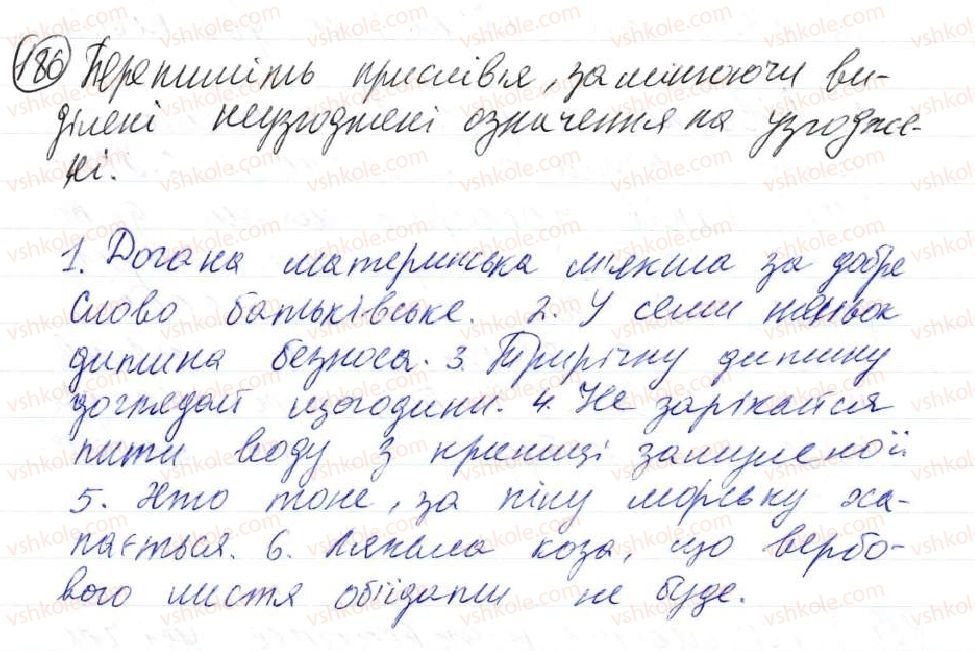 186 Перепишіть прислівя, замінюючи ви-
ділені неузгоджені означення на узгодже-
ні.
1. Догана материнська мʼякша за добре
слово батьківське. 2. У семи няньок
дитина безноса. 3. Трирічну дитину
доглядай щогодини. 4. Не зарікайся
пити воду з криниці замуленої
5. Хто тоне, за піну морську ха-
пається. 6. Лякала коза, що вербо-
вого листя обїдати не буде.